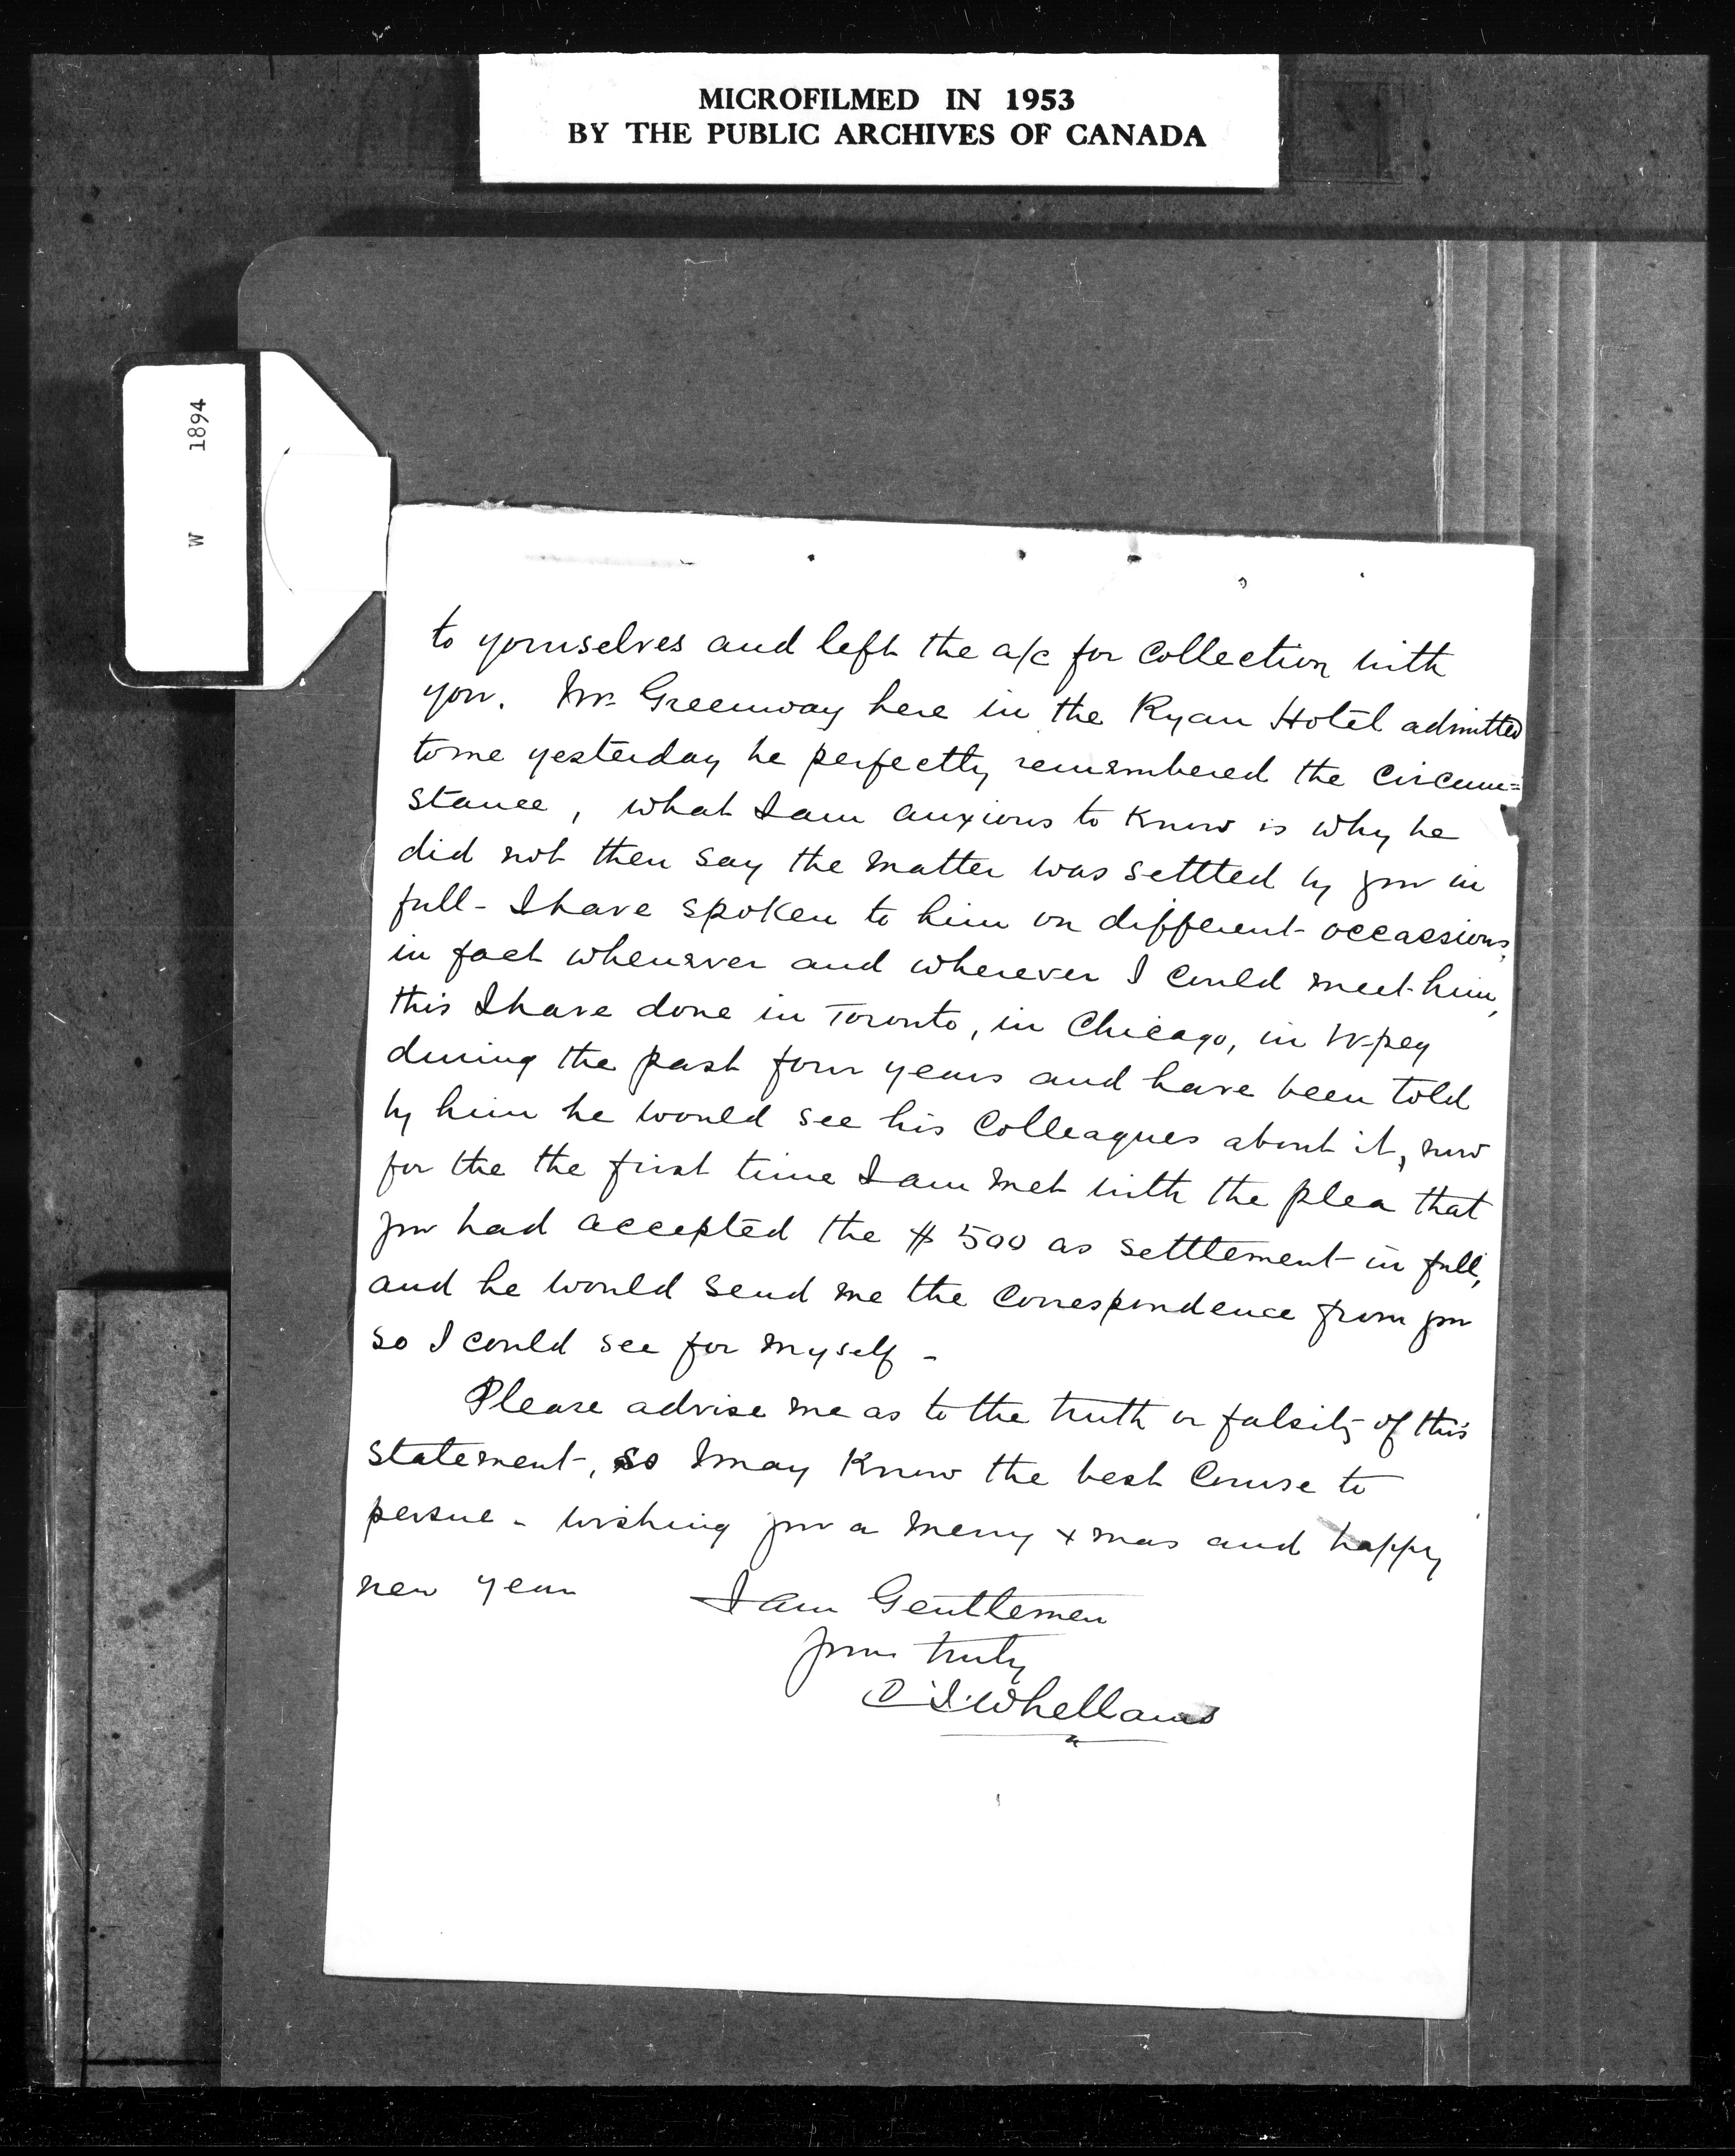 MICROFILMED IN 1953
BY THE PUBLIC ARCHIVES OF CANADA
W 1894
to yourselves and left the a/c for collection with
you. Mr. Greenway here in the Ryan Hotel admitted
to me yesterday he perfectly remembered the circum=
stance, what I am anxious to know is why he
did not then say the matter was settled by you in
full - I have spoken to him on different occassions,
in fact whenever and wherever I could meet him,
this I have done in Toronto, in Chicago, in W-peg
during the past four years and have been told
by him he would see his Colleagues about it, now
for the the first time I am met with the plea that
you had accepted the $ 500 as settlement in full,
and he would send me the Correspondence from you
so I could see for myself -
Please advise me as to the truth or falsity of this
statement, so I may know the best Course to
persue - wishing you a merry xmas and happy
new year I am Gentlemen
yours truly
Whellams